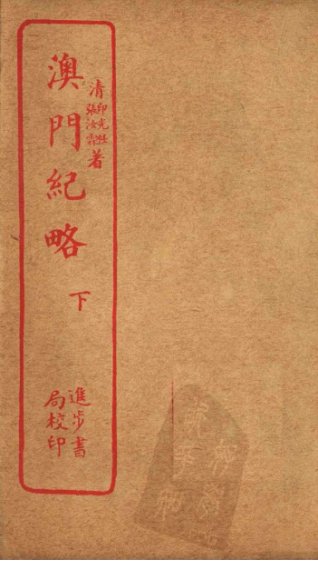 清
印光任
張汝霖
著
澳門紀略
下
進步書
局校印